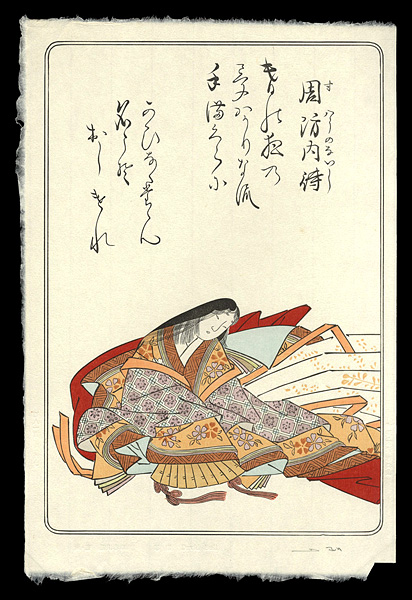 周防内侍
すはうのないし
春の夜の
夢はかりな流
手満くら尓
かひなくたゝん
名こそ
おしけれ